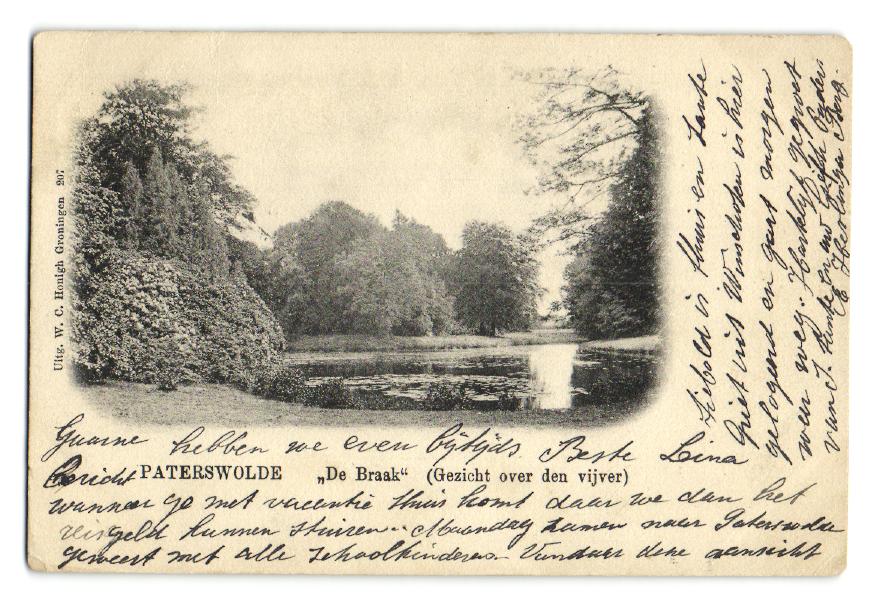 Uitg. W. C. Honigh Groningen 207
Gaarne hebben we even bijtijds Beste Lina
bericht
PATERSWOLDE „De Braak“ (Gezicht over den vijver)
wanneer ge met vacantie thuis komt daar we dan het
reisgeld kunnen sturen. Maandag samen naar Paterswolde
geweest met alle schoolkinderen Vandaar deze aansicht
Siebold is thuis en tante
Griet uit Winschoten is hier
gelogeerd en gaat morgen
weer weg. Hartelijk gegroet
van